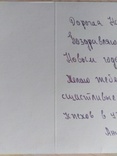 Дорогая
Поздравляю
Новым годо
Желаю тебе
счастливые
успехов в у